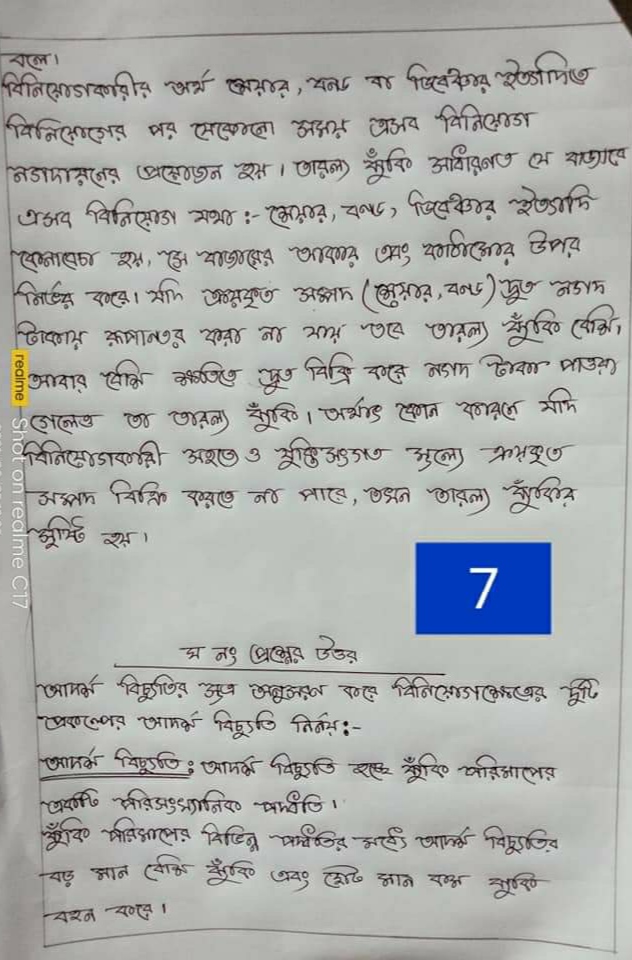 বলে।
বিনিয়োগকারীর অর্থ শেয়ার, বন্ড বা ডিবেঞ্চার ইত্যাদিতে
বিনিয়োগের পর যেকোনো সময় এসব বিনিয়োগ
নগদায়নের প্রয়োজন হয়। তারল্য ঝুঁকি সাধারনত যে বাজারে
এসব বিনিয়োগ যথা:- শেয়ার, বন্ড, ডিবেঞ্চার ইত্যাদি
কেনাবেচা হয়, সে বাজারের আকার এবং কাঠামোর উপর
নির্ভর করে। যদি ক্রয়কৃত সম্পদ (শেয়ার, বন্ড) দ্রুত নগদ
টাকায় রূপান্তর করা না যায় তবে তারল্য ঝুঁকি বেশি,
আবার বেশি ক্ষতিতে দ্রুত বিক্রি করে নগদ টাকা পাওয়া
গেলেও তা তারল্য ঝুঁকি। অর্থাৎ কোন কারনে যদি
বিনিয়োগকারী সহজে ও যুক্তিসংগত মূল্যে ক্রয়কৃত
সম্পদ বিক্রি করতে না পারে, তখন তারল্য ঝুঁকির
সৃষ্টি হয়।
7
ঘ নং প্রশ্নের উত্তর
আদর্শ বিচ্যুতির সূত্র অনুসরণ করে বিনিয়োগক্ষেত্রের দুটি
প্রকল্পের আদর্শ বিচ্যুতি নির্নয়:-
আদর্শ বিচ্যুতি: আদর্শ বিচ্যুতি হচ্ছে ঝুঁকি পরিমাপের
একটি পরিসংখ্যানিক পদ্ধতি।
ঝুঁকি পরিমাপের বিভিন্ন পদ্ধতির মধ্যে আদর্শ বিচ্যুতির
বড় মান বেশি ঝুঁকি এবং ছোট মান কম ঝুঁকি
বহন করে।
realme Shot on realme C17